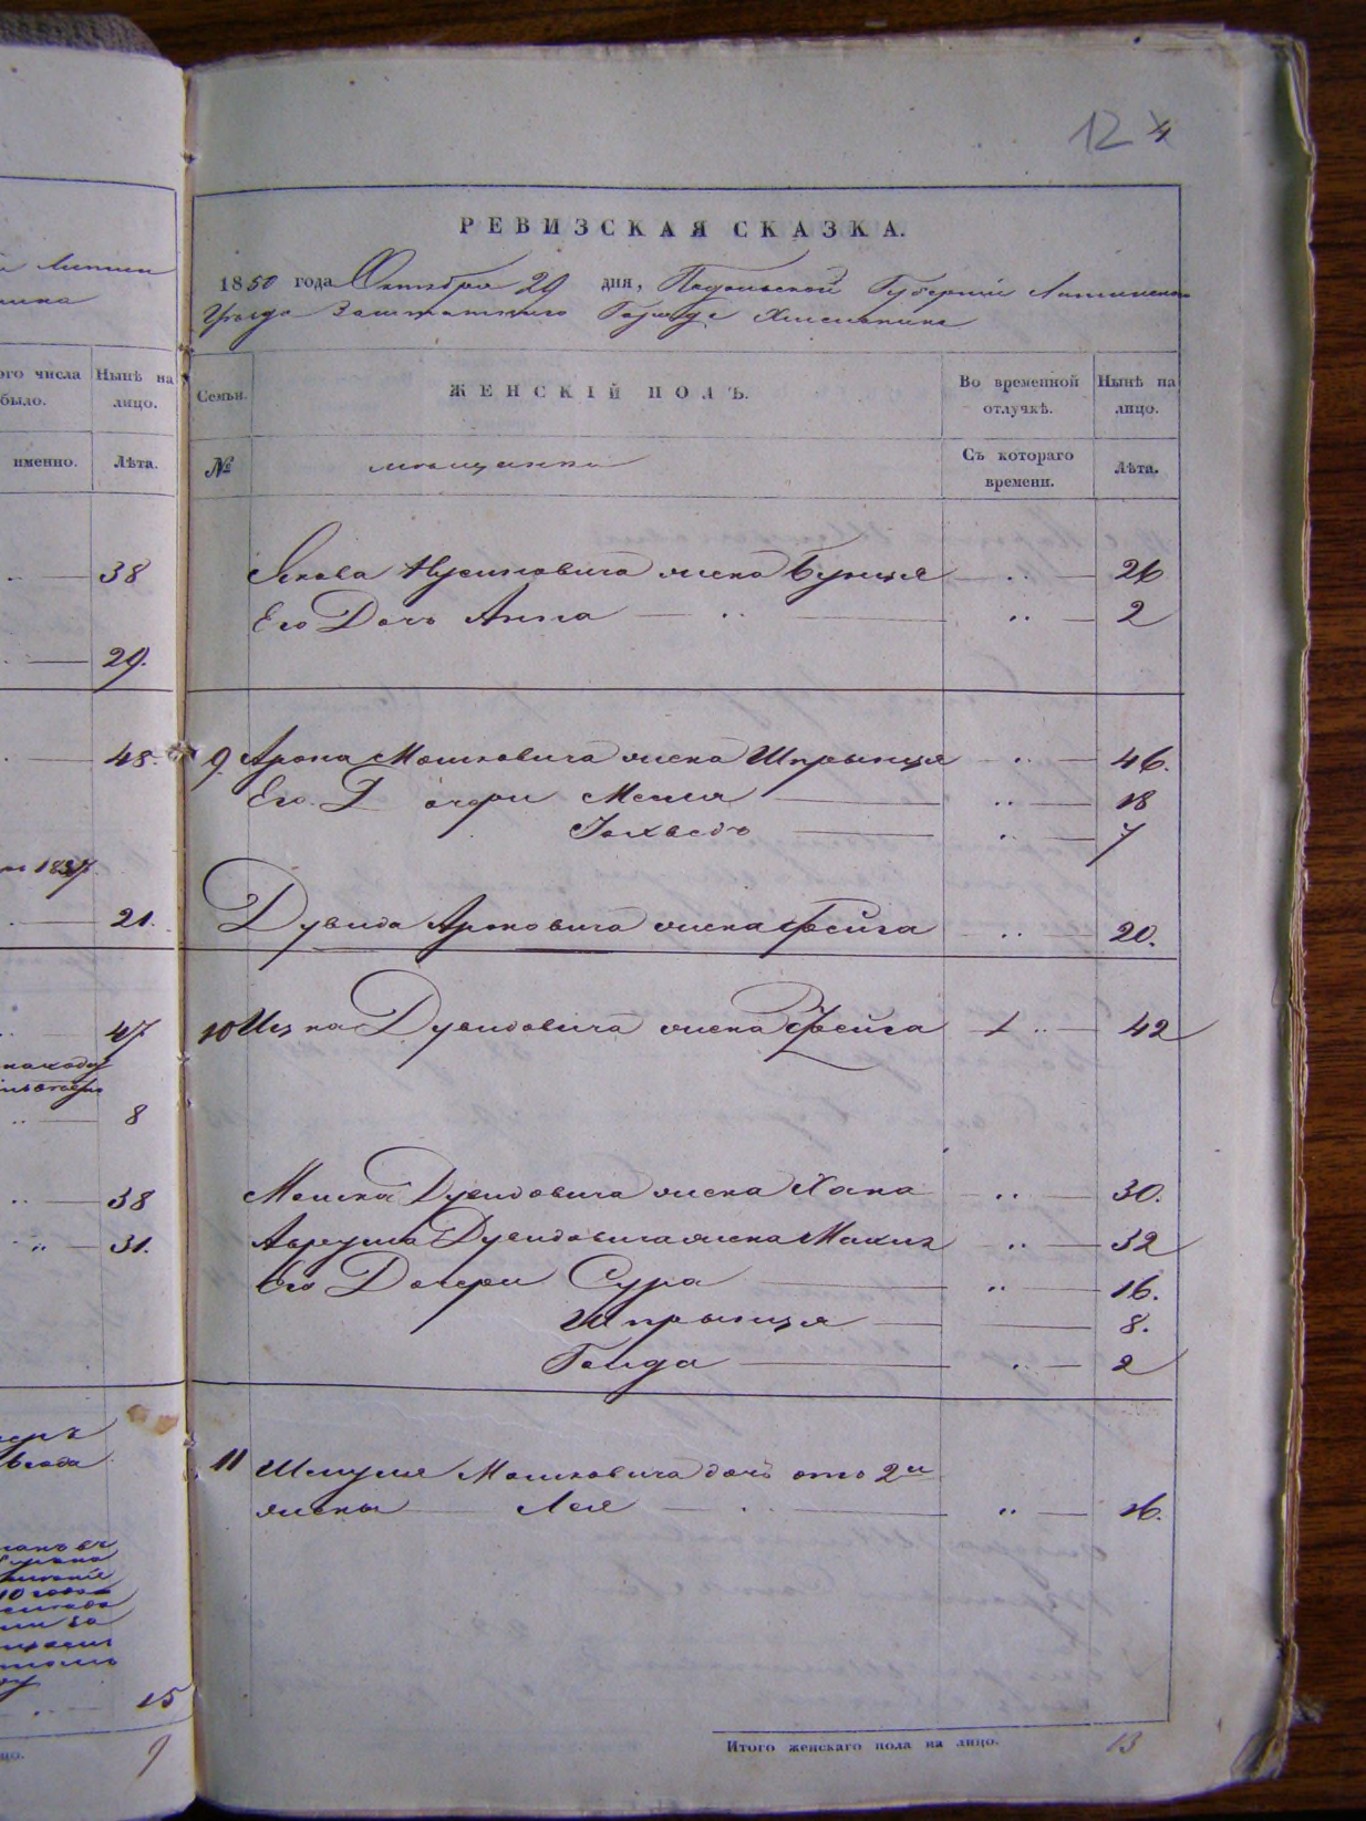 12 4
РЕВИЗСКАЯ СКАЗКА.
1850 года Октября 29 дня, Подольской Губернии Литинскаго
Уезда Заштатного Города Хмельника
ого числа
было.
Нынѣ на
лицо.
Семьи.
ЖЕНСКІЙ ПОЛЪ.
Во временной
отлучкѣ.
Нынѣ на
лицо.
именно.
Лѣта.
№
мещанки
Съ котораго
времени.
Лѣта.
38
Янкова Нусиновича жена Бунця 26
Его Дочь Анна 2
29.
48.
9. Арона Мошковича жена Шпрынця 46.
Его Дочери Меня 18
Иохведъ 7
1837.
21.
Дувида Ароновича жена Фейга 20.
47
10 Ицка Дувидовича жена Фейга 42
8
38
Мошка Дувидовича жена Хана 30.
31.
Аврума Дувидовича жена 32
Его Дочери Сура 16.
Шпрынця 8.
Голда 2
11 Шмуля Мошковича дочь отъ 2й
жены Лея 16.
15
9
Итого женскаго пола на лицо. 13